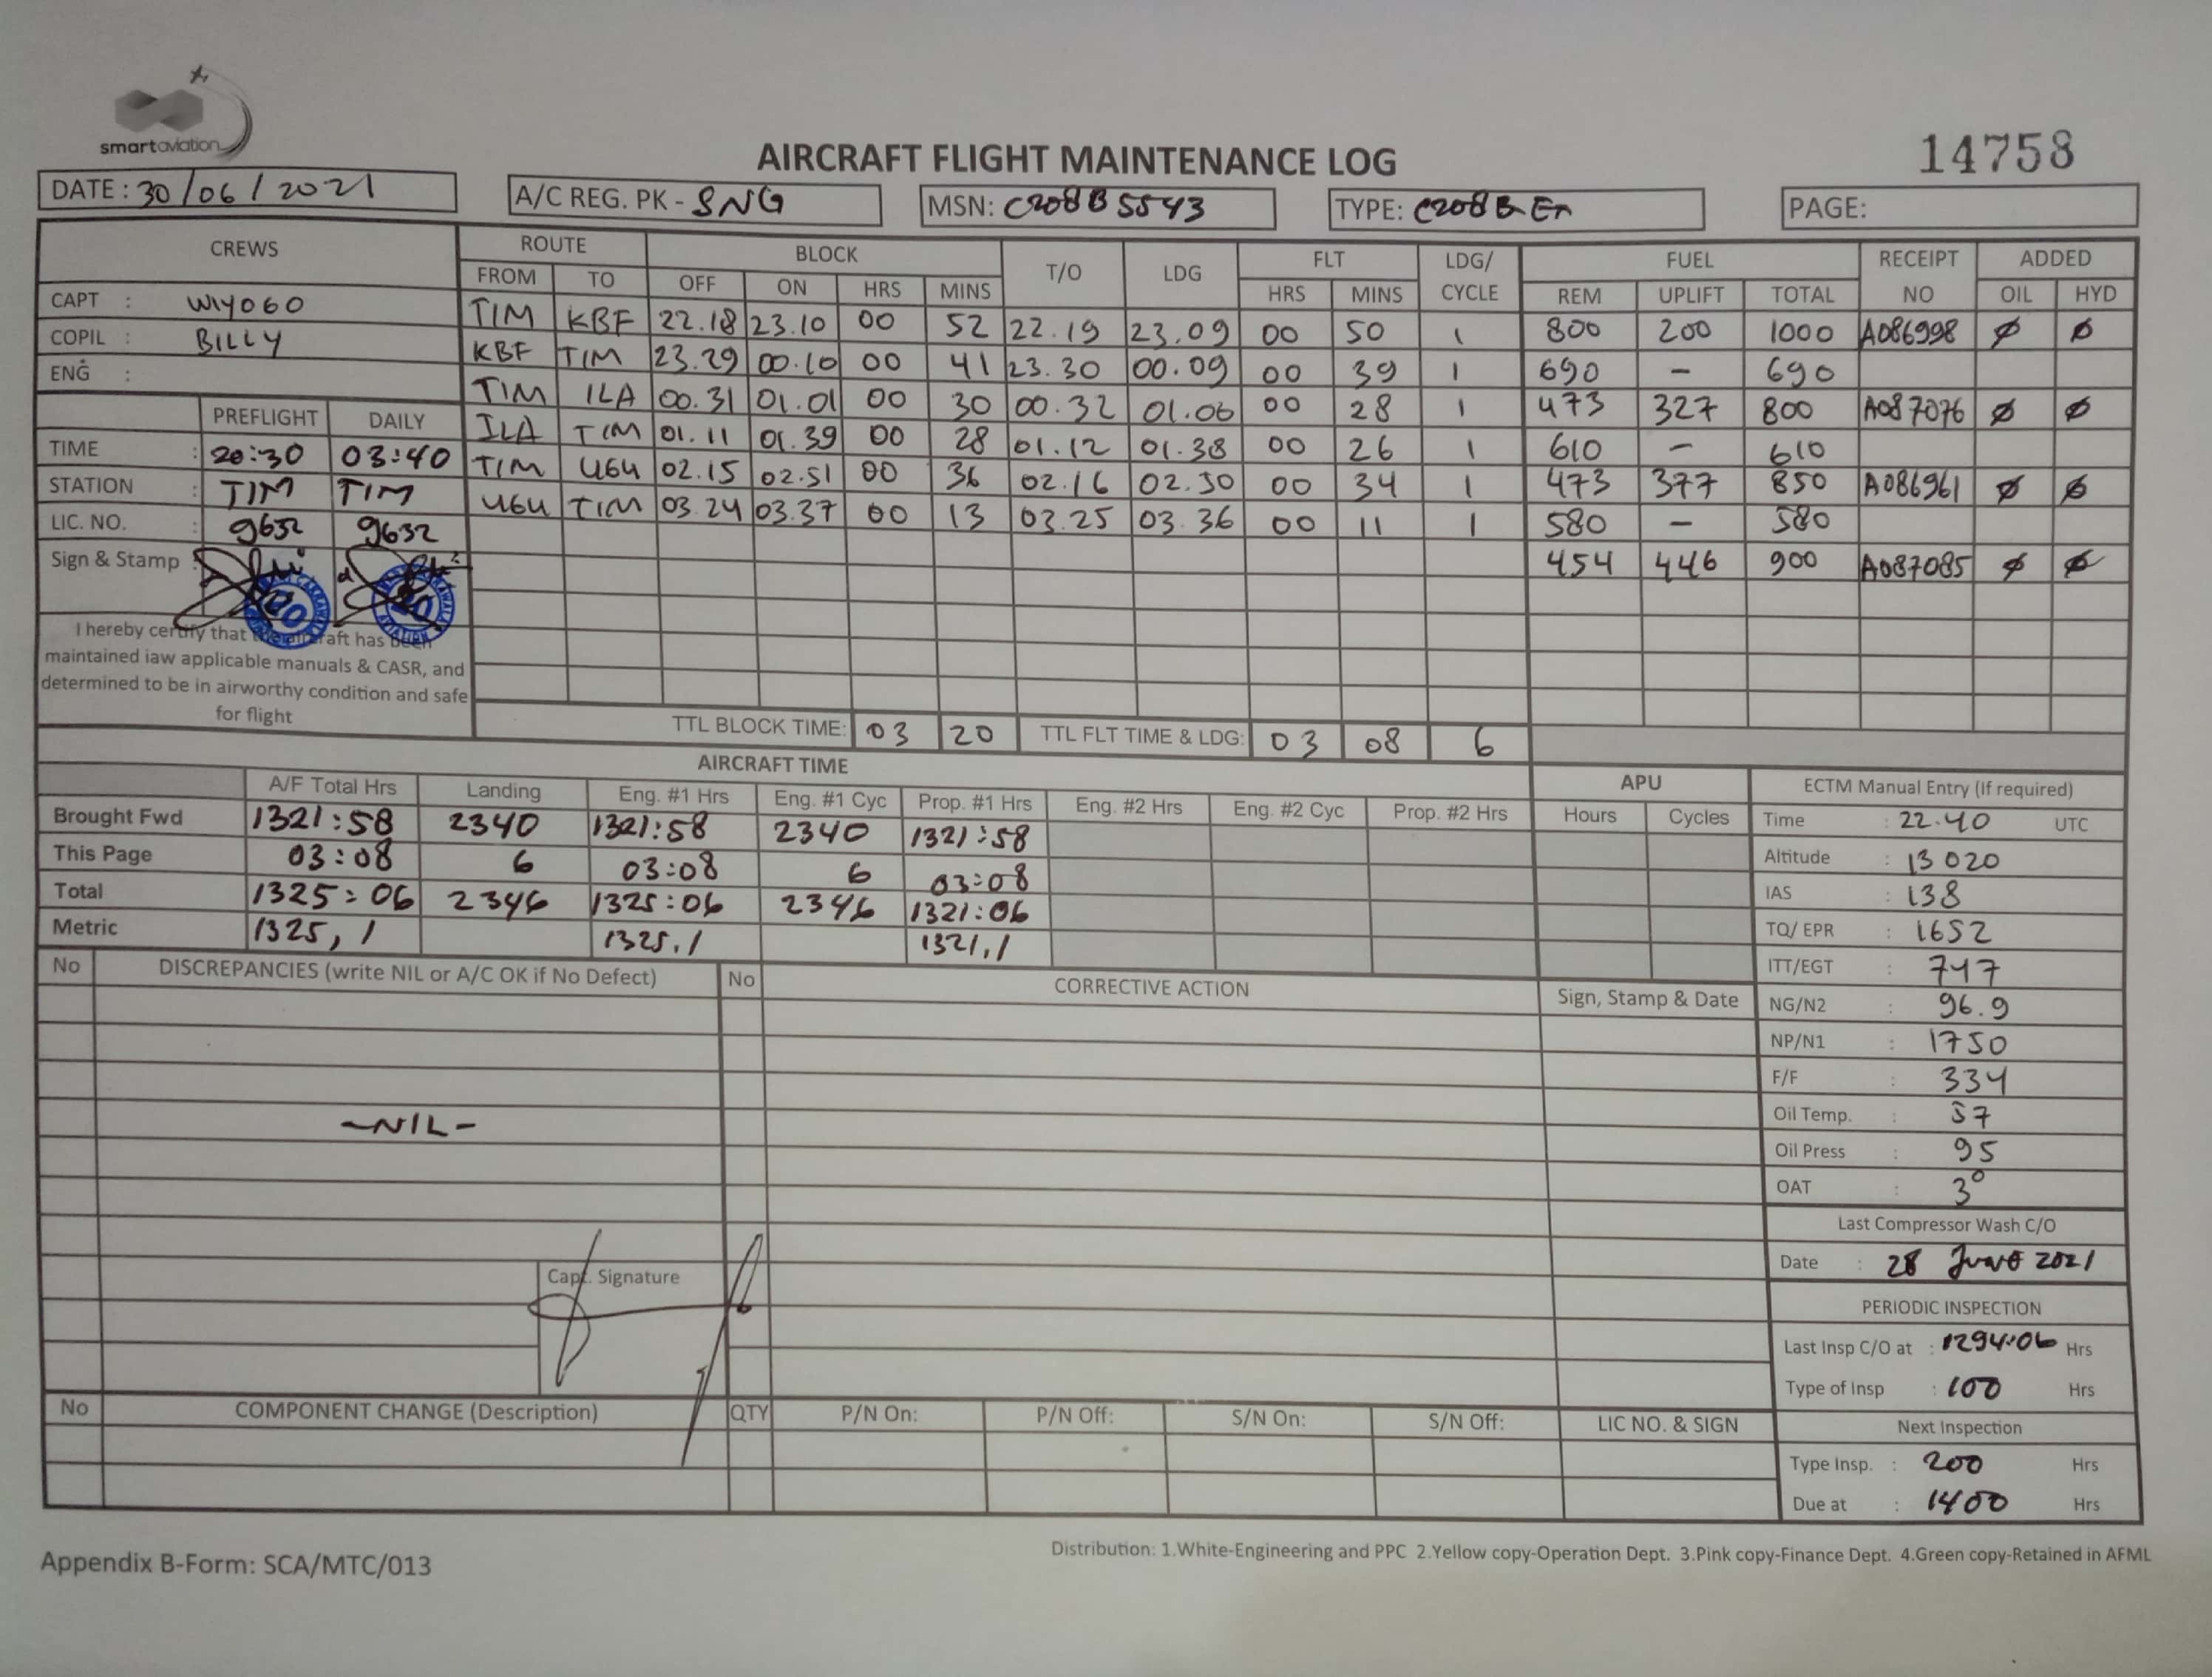 smartaviation
AIRCRAFT FLIGHT MAINTENANCE LOG
14758
DATE : 30/06/2021
A/C REG. PK - SNG
MSN: C208B5543
TYPE: C208B EX
PAGE:
CREWS ROUTE BLOCK T/O LDG FLT LDG/ CYCLE FUEL RECEIPT NO ADDED
FROM TO OFF ON HRS MINS HRS MINS REM UPLIFT TOTAL OIL HYD
CAPT : WIYOGO
COPIL : BILLY
ENG :
TIM KBF 22.18 23.10 00 52 22.19 23.09 00 50 1 800 200 1000 A086998 Ø Ø
KBF TIM 23.29 00.10 00 41 23.30 00.09 00 39 1 690 - 690
TIM ILA 00.31 01.01 00 30 00.32 01.00 00 28 1 473 327 800 A087076 Ø Ø
ILA TIM 01.11 01.39 00 28 01.12 01.38 00 26 1 610 - 610
TIM UGU 02.15 02.51 00 36 02.16 02.50 00 34 1 473 377 850 A086961 Ø Ø
UGU TIM 03.24 03.37 00 13 03.25 03.36 00 11 1 580 - 580
454 446 900 A087085 Ø Ø
PREFLIGHT DAILY
TIME : 20:30 03:40
STATION : TIM TIM
LIC. NO. : 9632 9632
Sign & Stamp :
I hereby certify that the aircraft has been
maintained iaw applicable manuals & CASR, and
determined to be in airworthy condition and safe
for flight
TTL BLOCK TIME: 03 20 TTL FLT TIME & LDG: 03 08 6
AIRCRAFT TIME
A/F Total Hrs Landing Eng. #1 Hrs Eng. #1 Cyc Prop. #1 Hrs Eng. #2 Hrs Eng. #2 Cyc Prop. #2 Hrs
Brought Fwd 1321:58 2340 1321:58 2340 1321:58
This Page 03:08 6 03:08 6 03:08
Total 1325:06 2346 1325:06 2346 1321:06
Metric 1325,1 1325,1 1321,1
APU
Hours Cycles
ECTM Manual Entry (If required)
Time : 22.40 UTC
Altitude : 13020
IAS : 138
TQ/ EPR : 1652
ITT/EGT : 747
NG/N2 : 96.9
NP/N1 : 1750
F/F : 334
Oil Temp. : 57
Oil Press : 95
OAT : 3°
Last Compressor Wash C/O
Date : 28 June 2021
PERIODIC INSPECTION
Last Insp C/O at : 1294:06 Hrs
Type of Insp : 100 Hrs
Next Inspection
Type Insp. : 200 Hrs
Due at : 1400 Hrs
No DISCREPANCIES (write NIL or A/C OK if No Defect) No CORRECTIVE ACTION Sign, Stamp & Date
-NIL-
Capt. Signature
No COMPONENT CHANGE (Description) QTY P/N On: P/N Off: S/N On: S/N Off: LIC NO. & SIGN
Appendix B-Form: SCA/MTC/013
Distribution: 1.White-Engineering and PPC 2.Yellow copy-Operation Dept. 3.Pink copy-Finance Dept. 4.Green copy-Retained in AFML